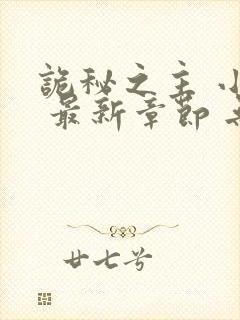 詭秘之主 小
最新章節 無
廿七兮